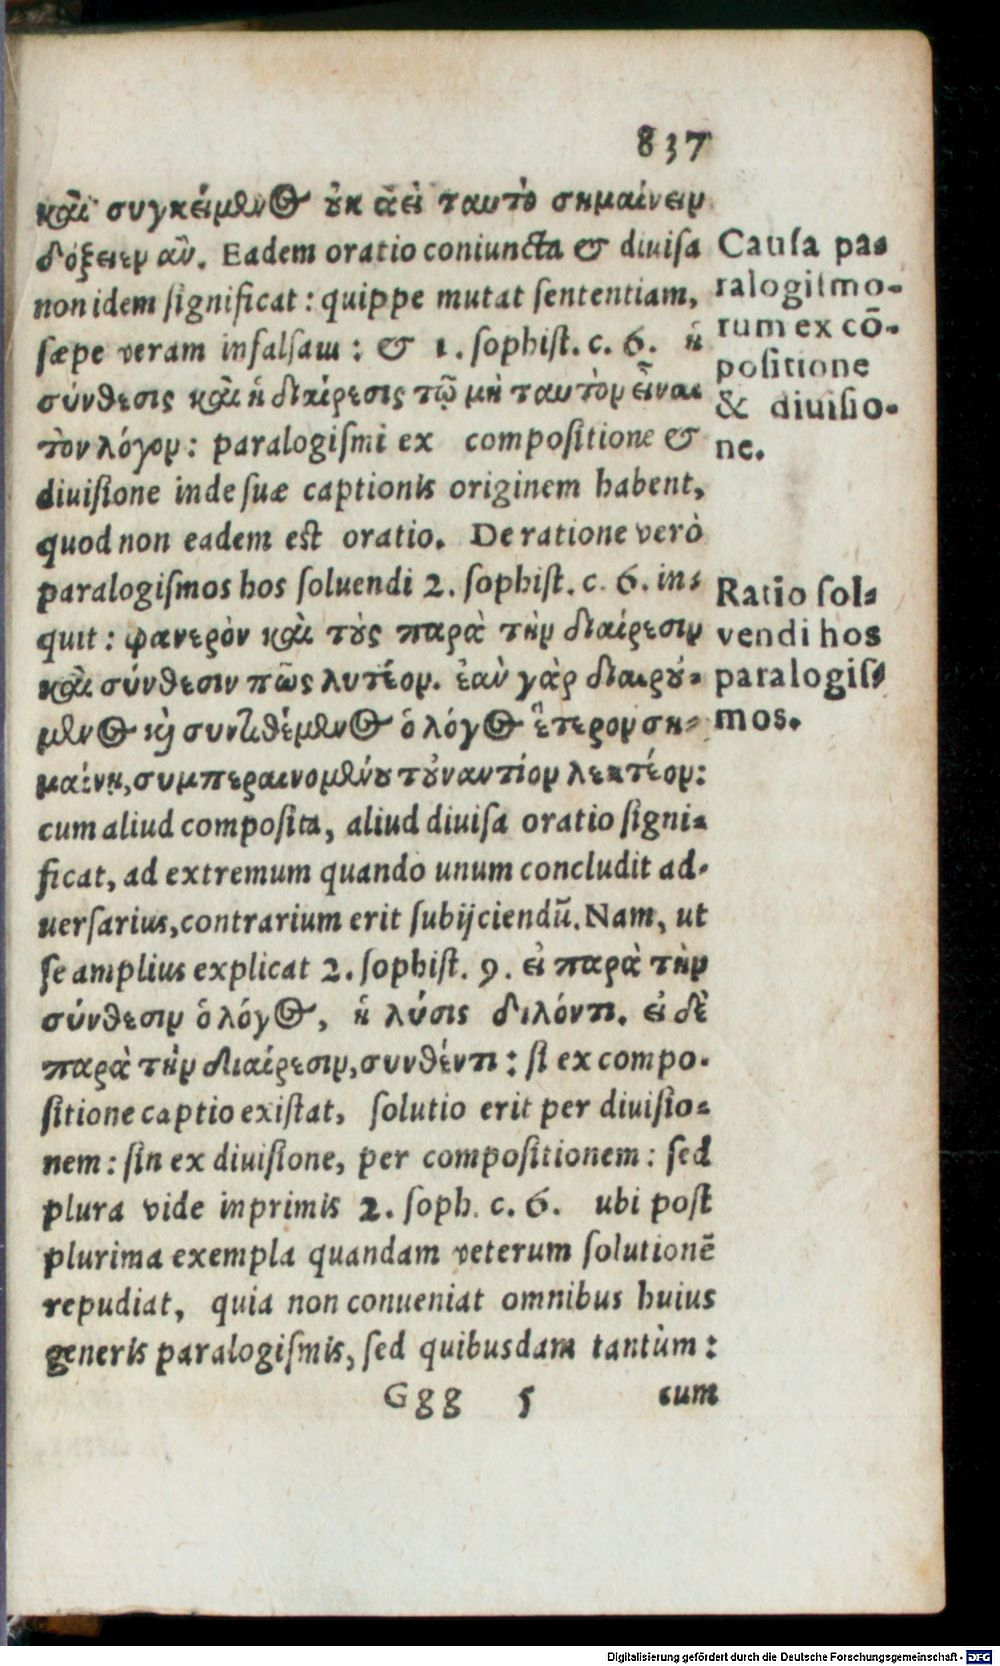 837
καὶ συγκείμενος οὐκ ἀεὶ ταυτὸ σημαίνειν
δόξειεν ἂν. Eadem oratio coniuncta & diuiſa
non idem ſignificat: quippe mutat ſententiam,
ſæpe veram in falſam: & 1. ſophiſt. c. 6. ἡ
σύνθεσις καὶ ἡ διαίρεσις τῷ μὴ ταυτὸν εἶναι
τὸν λόγον: paralogiſmi ex compoſitione &
diuiſione inde ſuæ captionis originem habent,
quod non eadem est oratio. De ratione verò
paralogiſmos hos ſoluendi 2. ſophiſt. c. 6. in-
quit: φανερὸν καὶ τοὺς παρὰ τὴν διαίρεσιν
καὶ σύνθεσιν πῶς λυτέον. ἐαν γὰρ διαιρού-
μενος καὶ συντιθέμενος ὁ λόγος ἕτερον ση-
μαίνῃ, συμπεραινομένου τοὐναντίον λεκτέον:
cum aliud compoſita, aliud diuiſa oratio ſigni-
ficat, ad extremum quando unum concludit ad-
uerſarius, contrarium erit ſubijciendū. Nam, ut
ſe amplius explicat 2. ſophiſt. 9. εἰ παρὰ τὴν
σύνθεσιν ὁ λόγος, ἡ λύσις διλόντι. εἰ δὲ
παρὰ τὴν διαίρεσιν, συνθέντι: ſi ex compo-
ſitione captio existat, ſolutio erit per diuiſio-
nem: ſin ex diuiſione, per compoſitionem: ſed
plura vide inprimis 2. ſoph. c. 6. ubi post
plurima exempla quandam veterum ſolutionē
repudiat, quia non conueniat omnibus huius
generis paralogiſmis, ſed quibusdam tantùm:
Ggg 5 cum
Cauſa pa-
ralogiſmo-
rum ex cō-
poſitione
& diuiſio-
ne.
Ratio ſol-
vendi hos
paralogiſ-
mos.
Digitalisierung gefördert durch die Deutsche Forschungsgemeinschaft - DFG